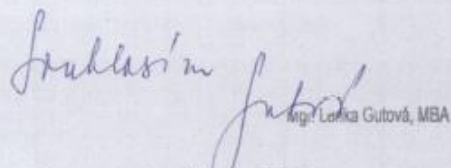 Souhlasím
Gutová
Mgr. Lenka Gutová, MBA